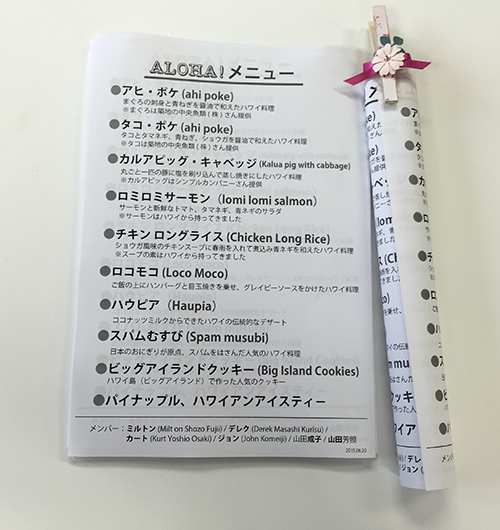 ALOHA!メニュー
●アヒ・ポケ (ahi poke)
まぐろの刺身と青ねぎを醤油で和えたハワイ料理
※まぐろは築地の中央魚類 (株) さん提供
●タコ・ポケ (ahi poke)
タコとタマネギ、青ねぎ、ショウガを醤油で和えたハワイ料理
※タコは築地の中央魚類 (株) さん提供
●カルアピッグ・キャベッジ (Kalua pig with cabbage)
丸ごと一匹の豚に塩を刷り込んで蒸し焼きにしたハワイ料理
※カルアピッグはシンプルカンパニーさん提供
●ロミロミサーモン (lomi lomi salmon)
サーモンと新鮮なトマト、タマネギ、青ネギのサラダ
※サーモンはハワイから持ってきました
●チキン ロングライス (Chicken Long Rice)
ショウガ風味のチキンスープに春雨を入れて煮込み青ネギを和えたハワイ料理
※スープの素はハワイから持ってきました
●ロコモコ (Loco Moco)
ご飯の上にハンバーグと目玉焼きを乗せ、グレイビーソースをかけたハワイ料理
●ハウピア (Haupia)
ココナッツミルクからできたハワイの伝統的なデザート
●スパムむすび (Spam musubi)
日本のおにぎりが原点、スパムをはさんだ人気のハワイ料理
●ビッグアイランドクッキー (Big Island Cookies)
ハワイ島（ビッグアイランド）で作った人気のクッキー
●パイナップル、ハワイアンアイスティー
メンバー：ミルトン (Milt on Shozo Fujii) / デレク (Derek Masashi Kurisu) /
カート (Kurt Yoshio Osaki) / ジョン (John Komeiji) / 山田成子 / 山田芳照
2015.06.20